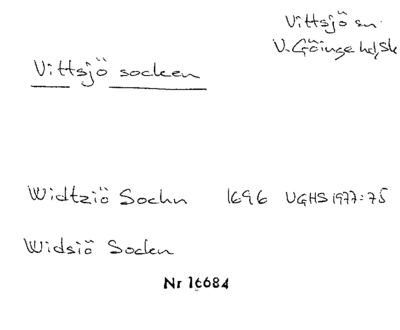 Vittsjö sn.
V. Göinge hd, Sk
Vittsjö socken
Widtziö Sochn 1696 VGHS 1977:75
Widsiö Socken
Nr 16684